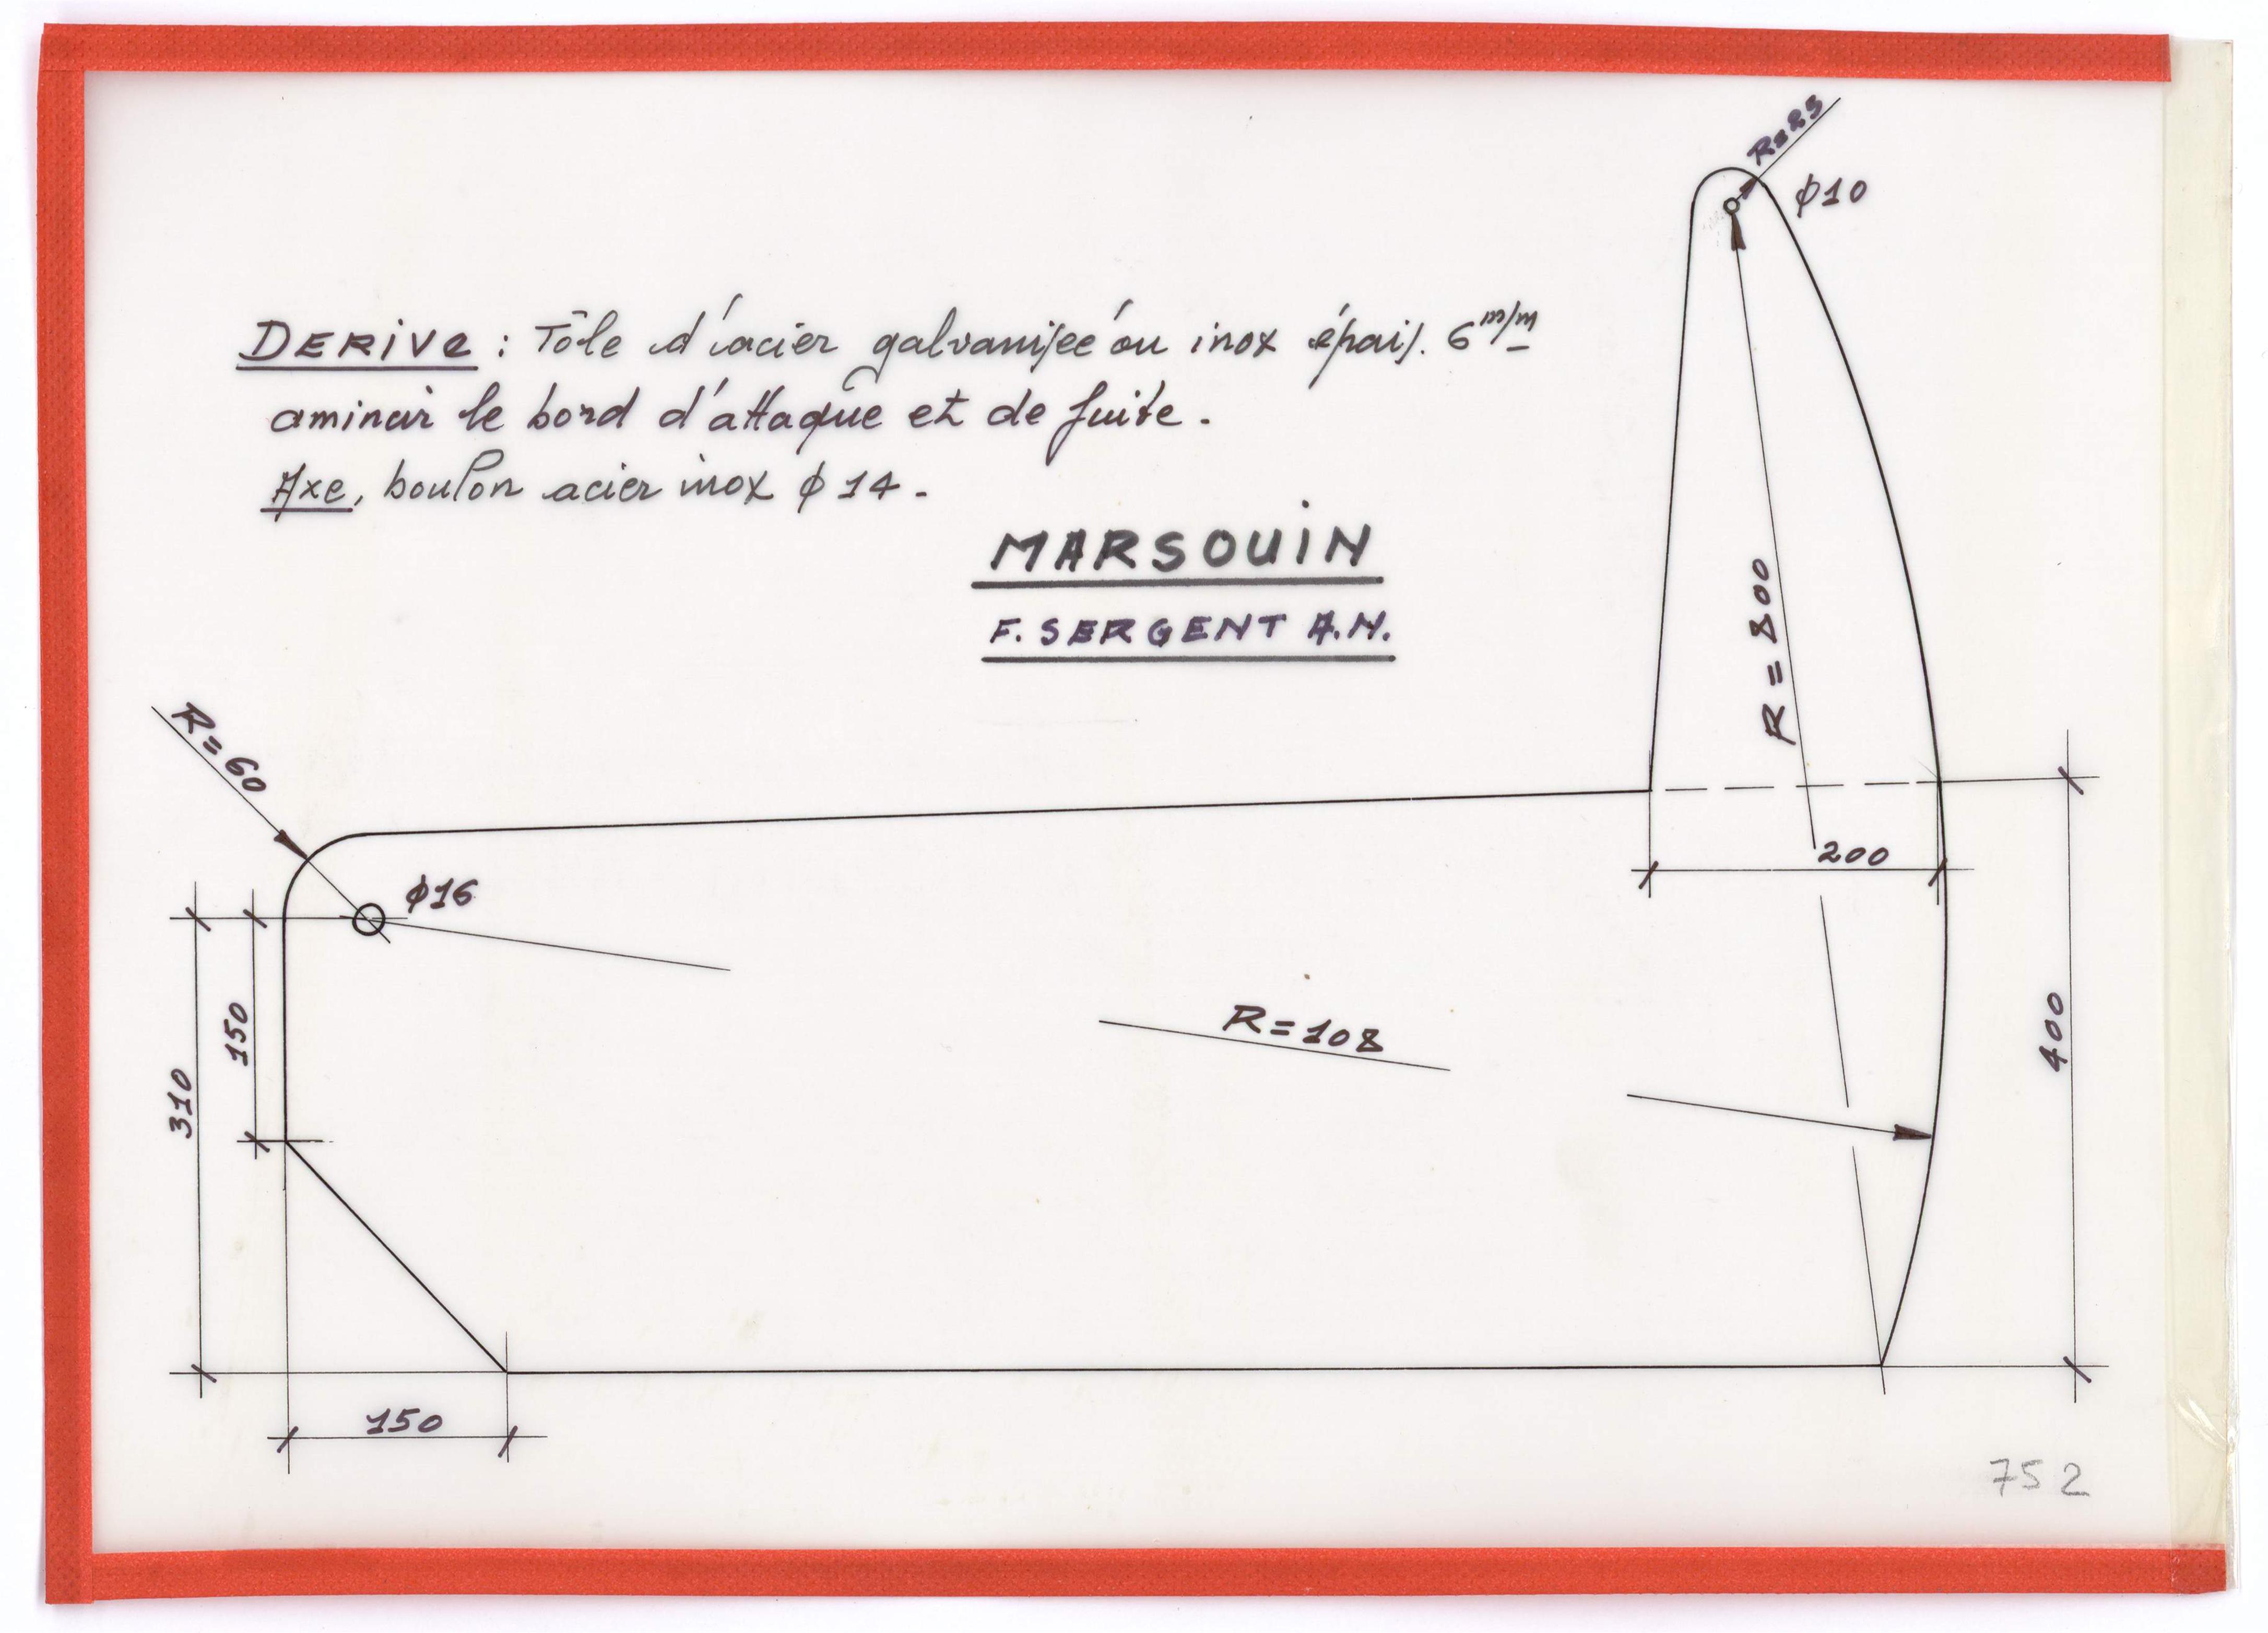 R=25
φ10
DERIVE : Tôle d'acier galvanisée ou inox épais. 6 m/m
amincir le bord d'attaque et de fuite.
Axe, boulon acier inox φ 14.
MARSOUIN
F. SERGENT A.N.
R = 800
R=60
200
φ16
R=108
150
310
400
150
752